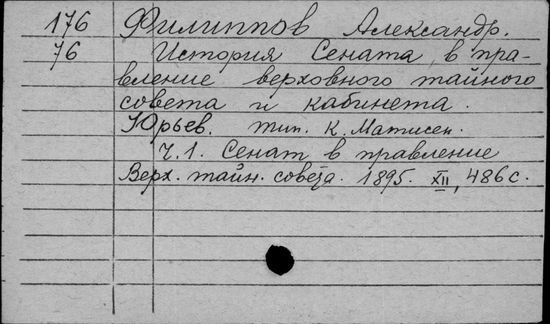 176 Филиппов Александр.
76 История Сената в пра-
вление верховного тайного
совета и кабинета.
Юрьев. тип. К. Матисен.
Ч.1. Сенат в правление
Верх. тайн. совета. 1895. XII, 486 с.